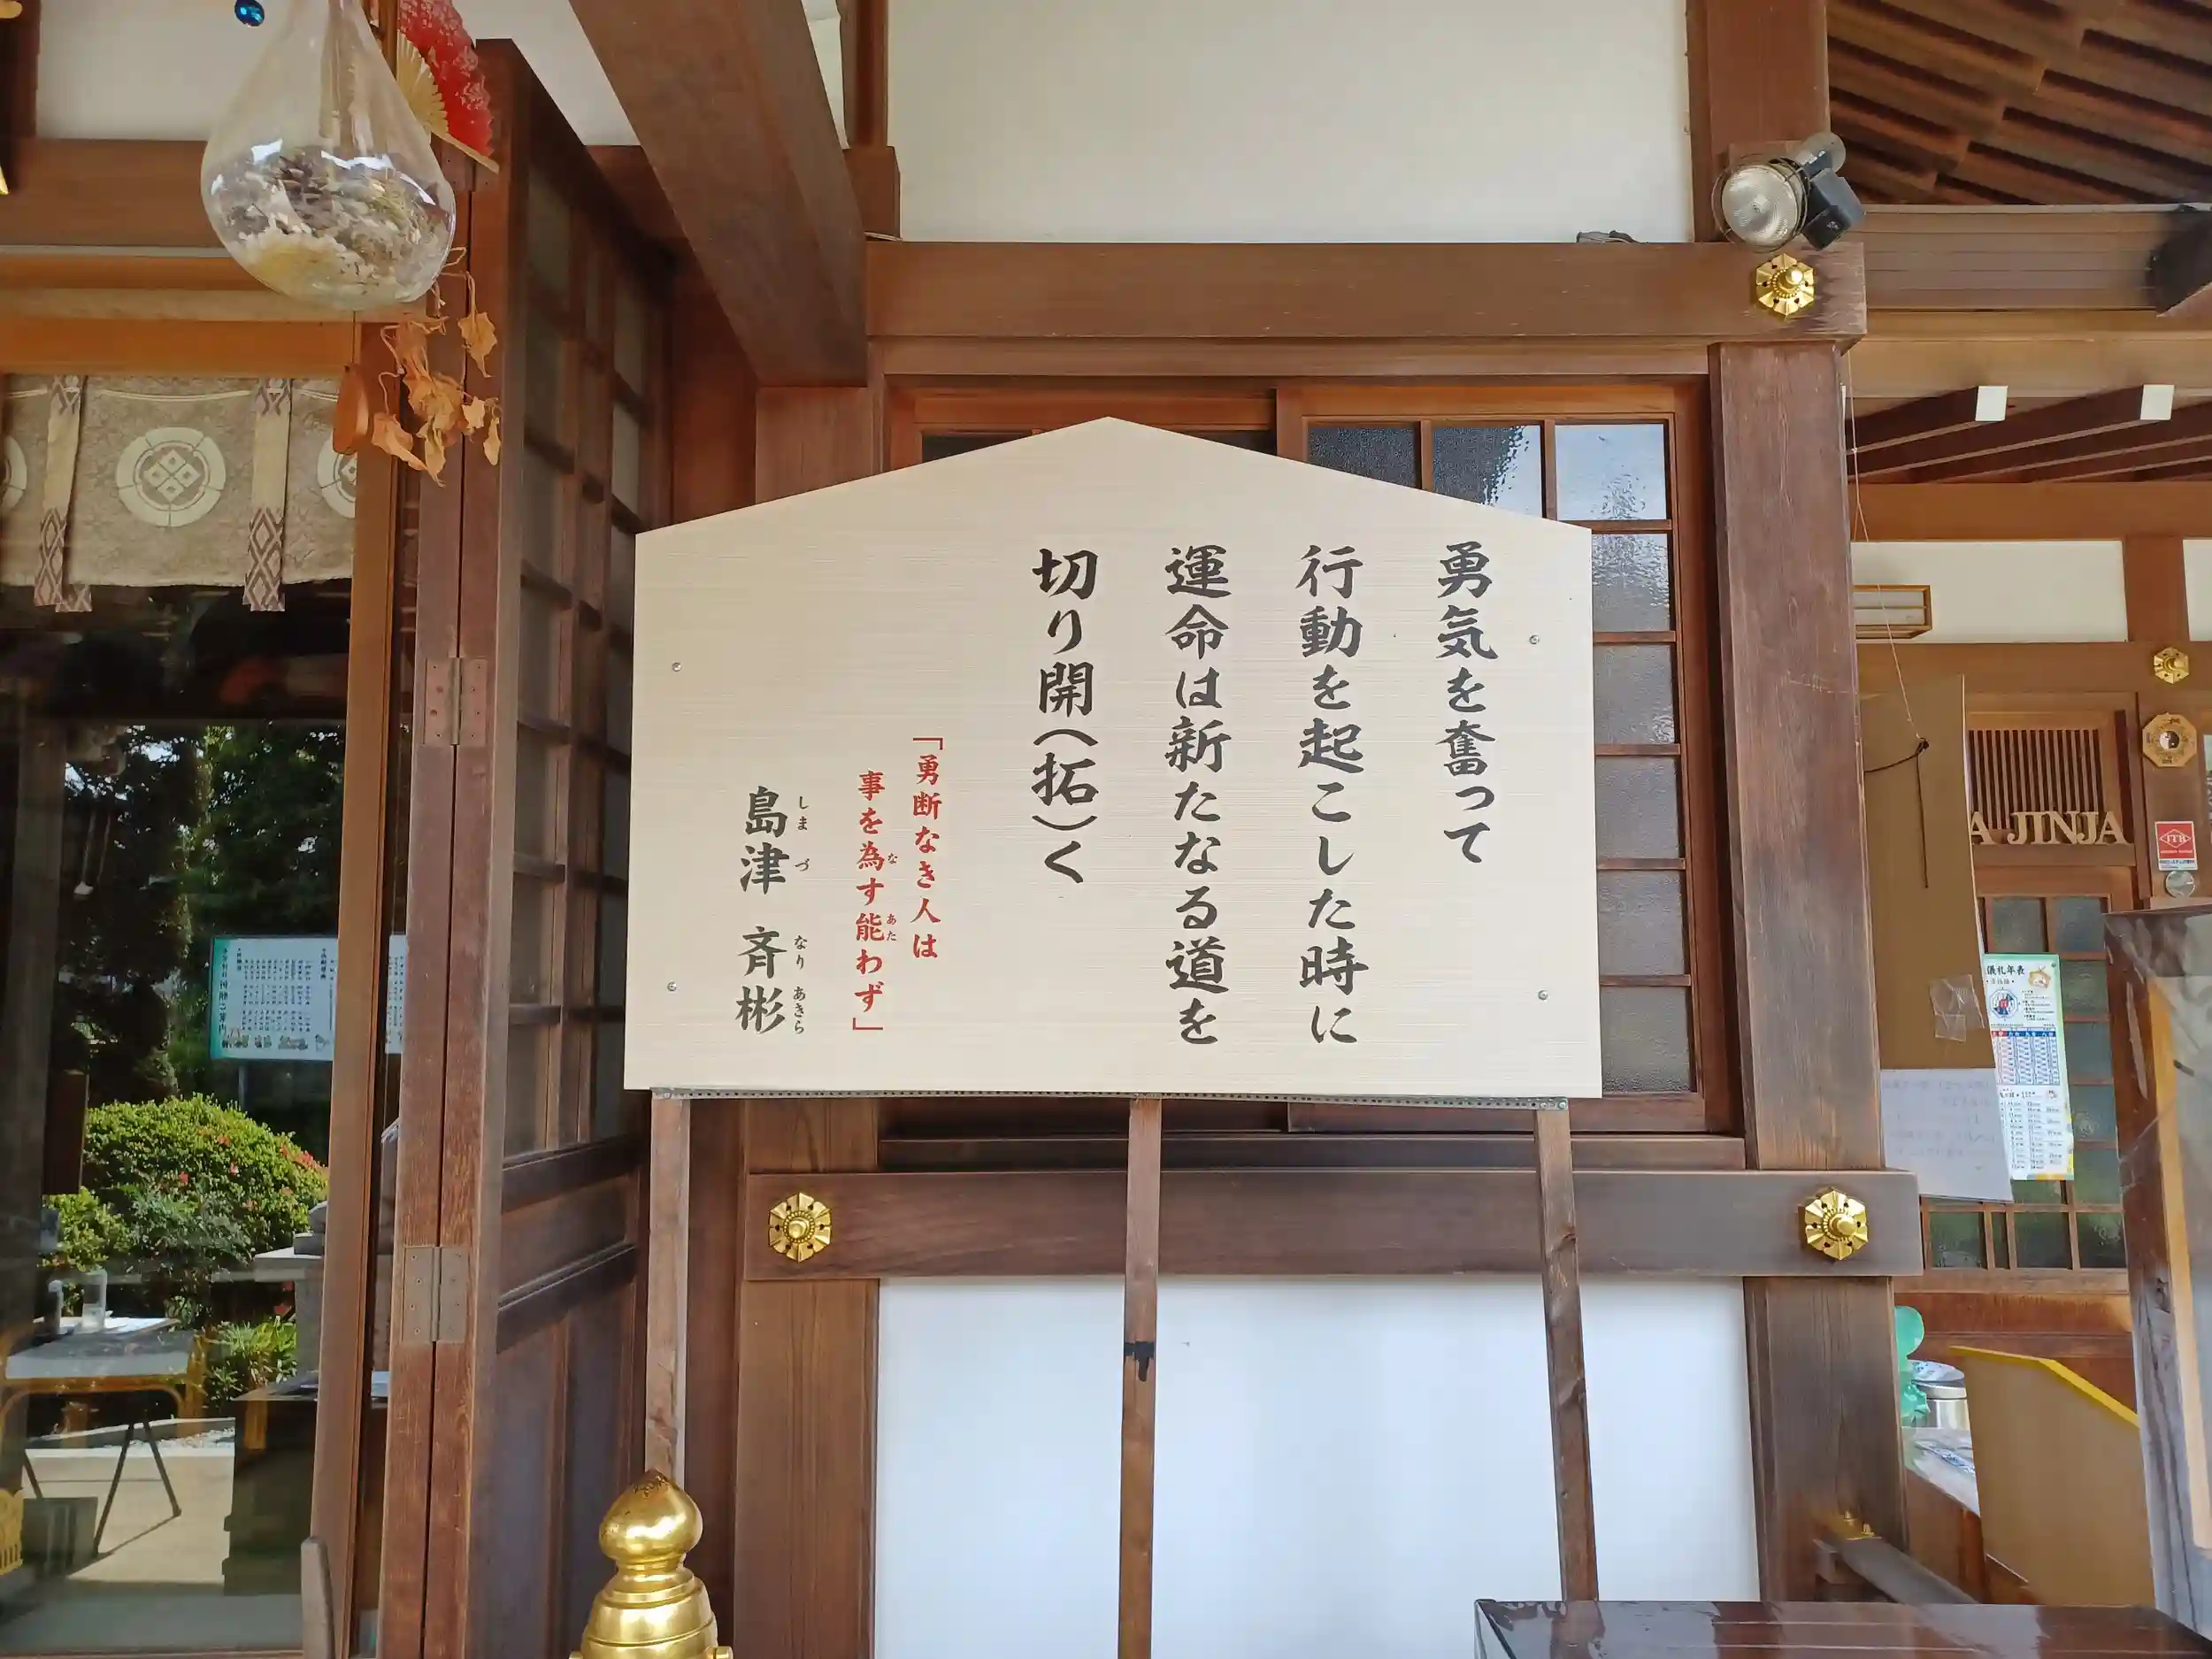 勇気を奮って
行動を起こした時に
運命は新たなる道を
切り開(拓)く
「勇断なき人は
事を為す能わず」
な
あた
島津 斉彬
しまづ なりあきら
A JINJA
儀礼年表